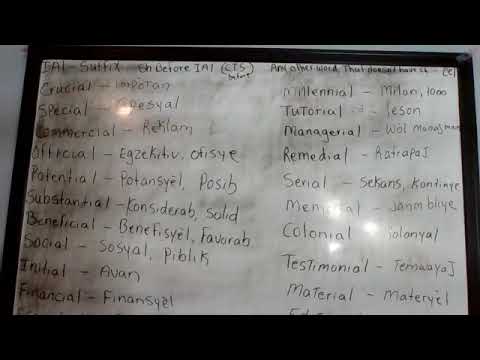 IAl - Suffix Sh Before IAl (CTS- before
Crucial - Inpòran
Special - Espesyal
Commercial - Reklam
Official - Egzekitiv, ofisye
Potential - Potansyèl, Posib
Substantial - Konsiderab, Solid
Beneficial - Benefisyèl, Favorab
Social - Sosyal, Piblik
Initial - Avan
Financial - Finansyèl
And other word that doesn't have
Millennial - Milan, 1000
Tutorial - leson
Managerial - Wòl
Remedial - Ratrapaj
Serial - Sekans, Kontinye
Memorial - Janm bliye
Colonial - Kolonyal
Testimonial - Temwayaj
Material - Materyèl